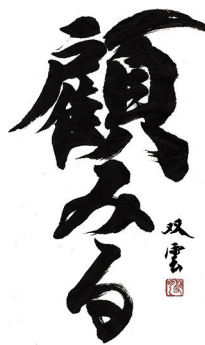 顧みる
双雲